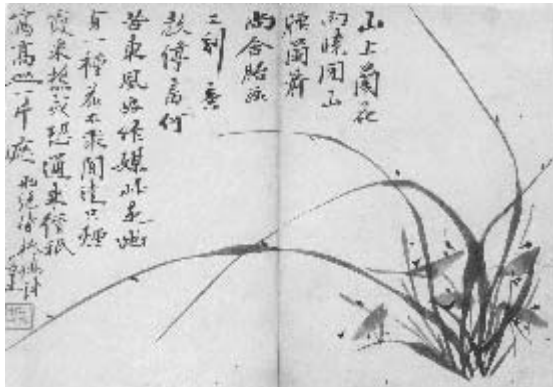 山上蘭花
向曉開山
腰蘭箭
尚含胎畫
工刻意
教停蓄何
苦東風好作媒此是幽
貞一種花不求聞達只煙
霞采樵或恐通來徑祇
寫高山一片遮